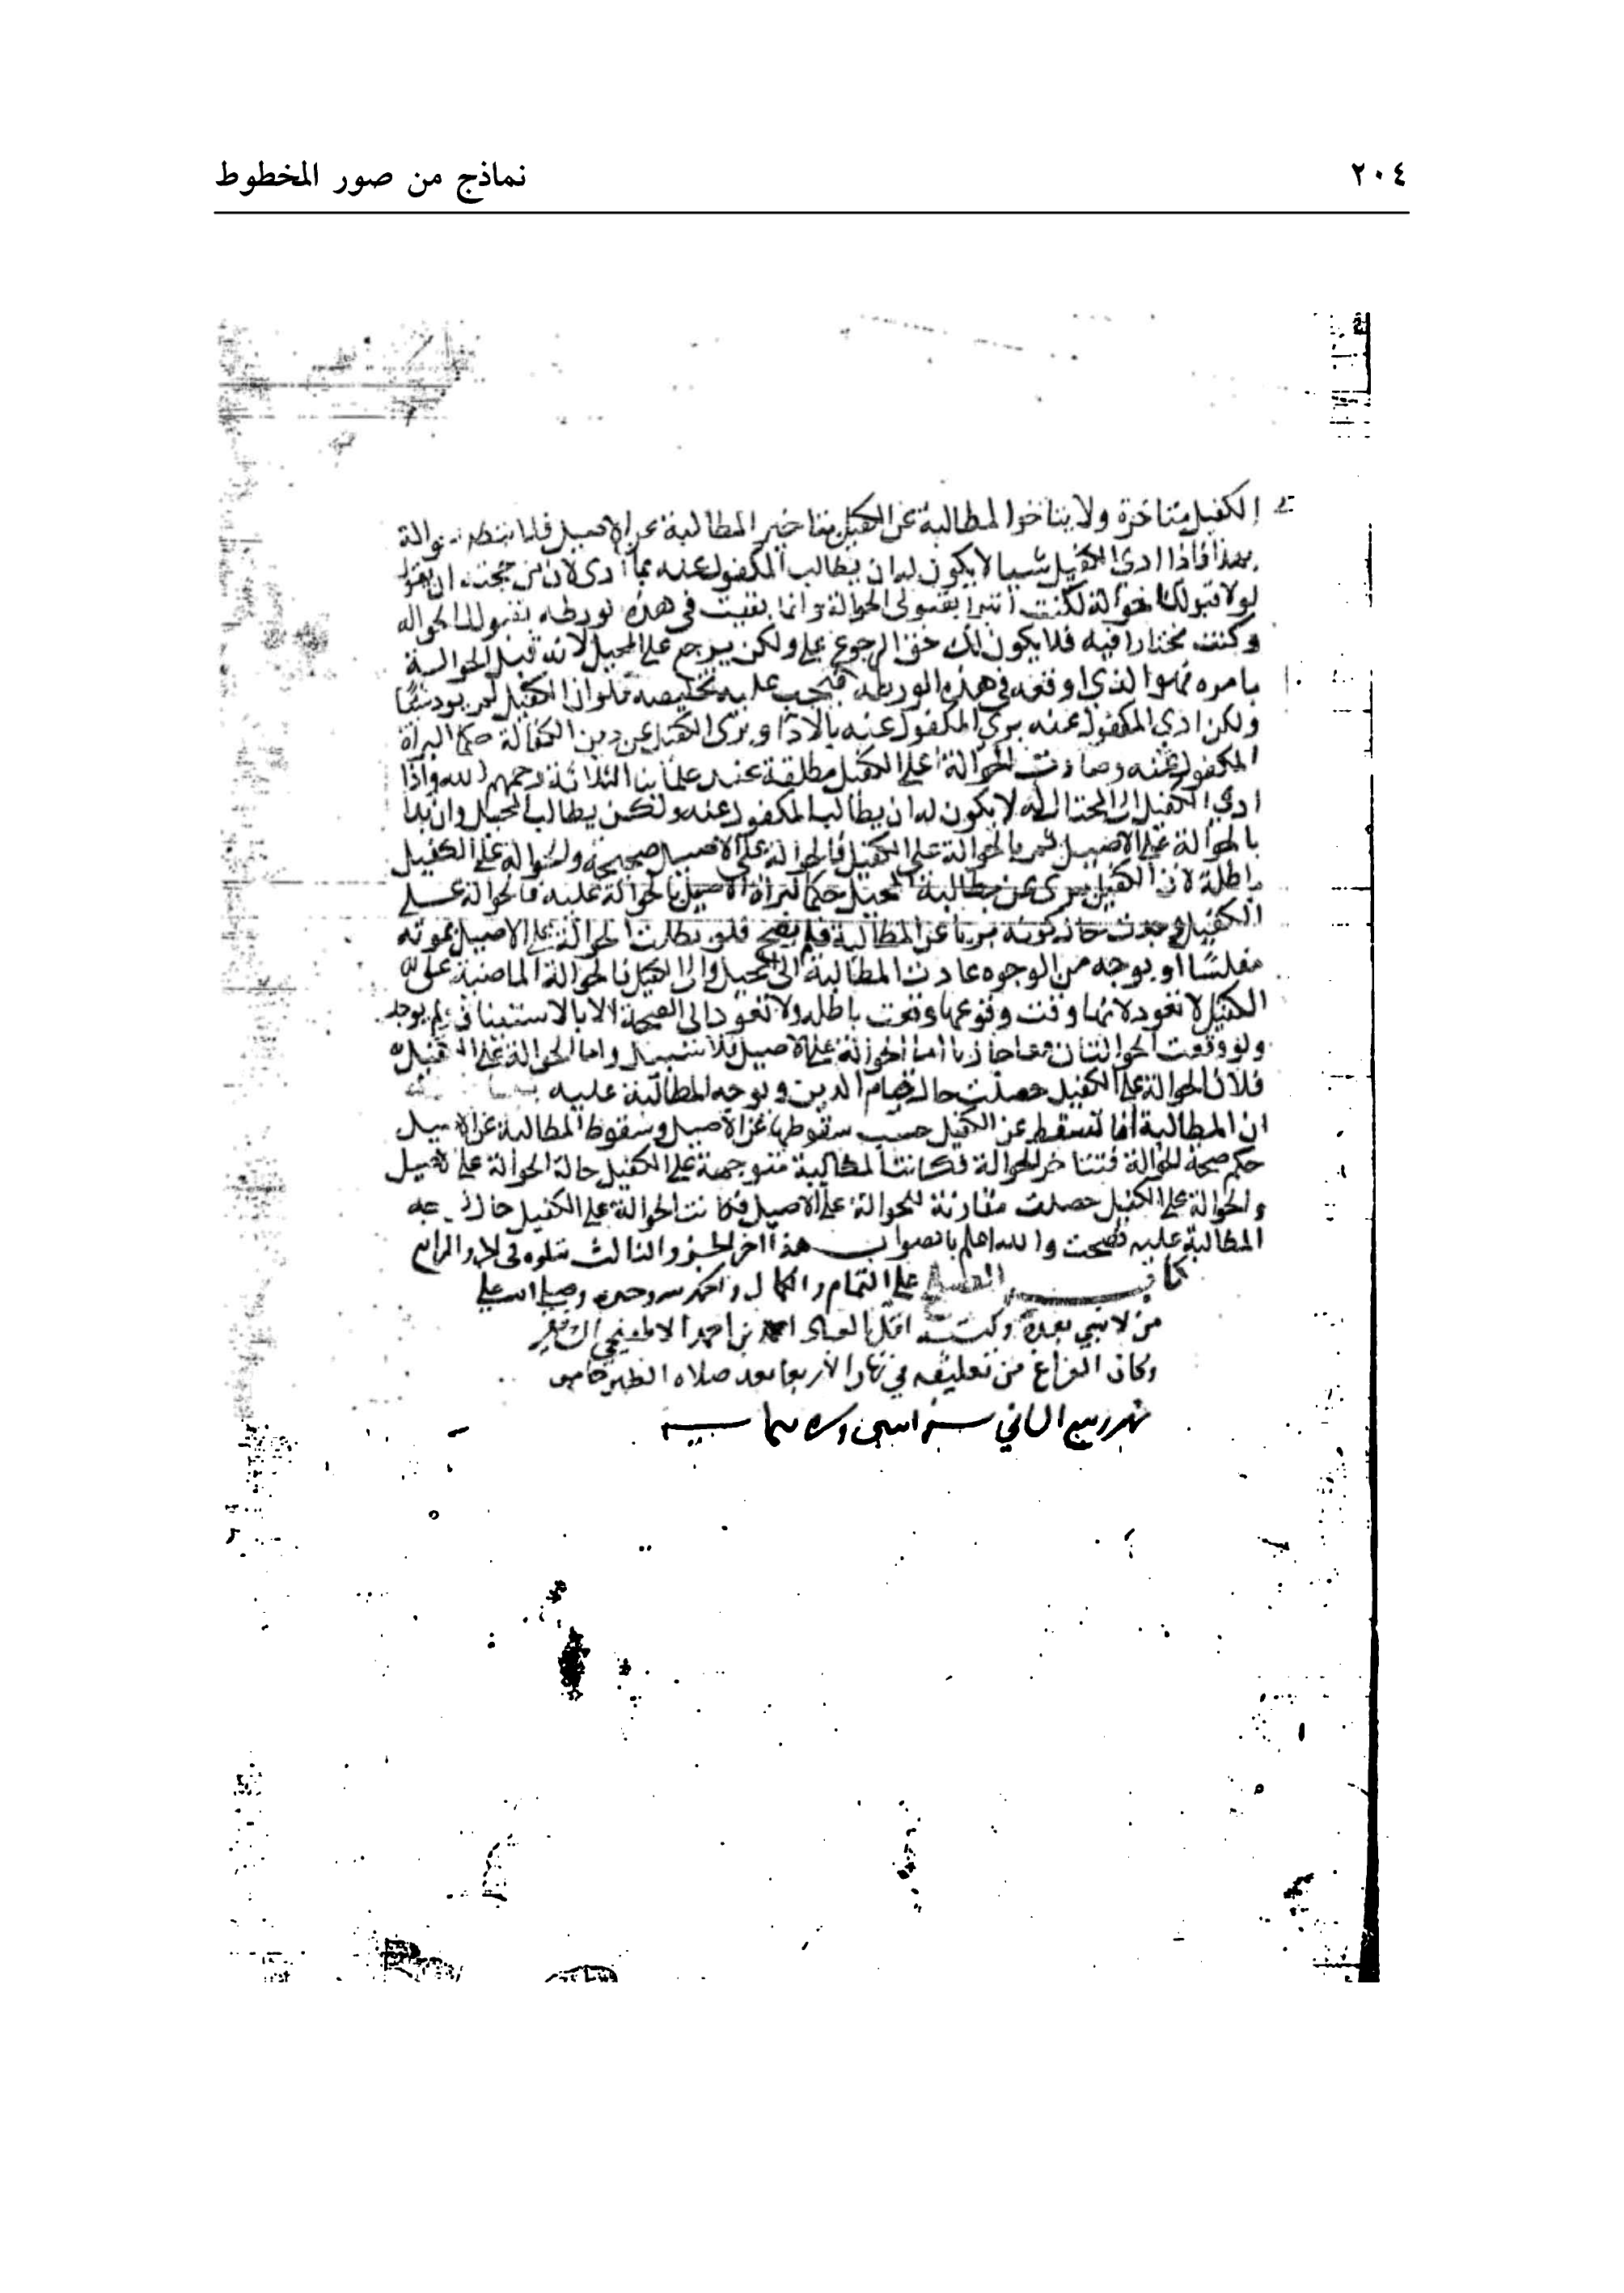 ٢٠٤
نماذج من صور المخطوط
الكفيل متاخرة ولا يتاخر المطالبة عن الكفيل بتاخير المطالبة عن الاصيل فلما
بهذا فاذا ادى الكفيل شيا لا يكون له ان يطالب المكفول عنه بما ادى لان من حجته ان يقول
لولا قبولك الحوالة لكنت انا بقبولى الحوالة وانما بقيت فى هذه الورطه بقبولك الحواله
وكنت مختارا فيه فلا يكون لك حق الرجوع على ولكن يرجع على المحيل لانه قبل الحوالة
بامره فهو الذى اوقعه فى هذه الورطه فيجب عليه تخليصه فلو ان الكفيل لم يود شيا
ولكن ادى المكفول عنه برى المكفول عنه بالادا وبرى الكفيل عن دين الكفالة حكما لبراة
المكفول عنه وصارت الحوالة على الكفيل مطلقة عند علمائنا الثلاثة رحمهم الله واذا
ادى الكفيل الى المحتال له لا يكون له ان يطالب المكفول عنه ولكن يطالب المحيل وان بدا
بالحوالة على الاصيل ثم بالحوالة على الكفيل فالحوالة على الاصيل صحيحة والحوالة على الكفيل
باطلة لان الكفيل برى عن مطالبة المحيل حكما لبراة الاصيل بالحوالة عليه فالحوالة على
الكفيل وجدت حال كونه بريا عن المطالبة فلم يصح فلو بطلت الحوالة على الاصيل بموته
مفلسا او بوجه من الوجوه عادت المطالبة الى المحيل والى الكفيل فالحوالة الماضية على
الكفيل لا تعود لانها وقت وقوعها وقعت باطله ولا تعود الى الصحة الا بالاستيناف ولم يوجد
ولو وقعت الحوالتان معا جازتا اما الحوالة على الاصيل فلا شبهة واما الحوالة على الكفيل
فلان الحوالة على الكفيل حصلت حال قيام الدين وتوجه المطالبة عليه
ان المطالبة انما تسقط عن الكفيل حسب سقوطها عن الاصيل وسقوط المطالبة عن الاصيل
حكم صحة الحوالة فتتاخر الحوالة فكانت المطالبة متوجهة على الكفيل حالة الحوالة على
والحوالة على الكفيل حصلت مقارنة للحوالة على الاصيل فكانت الحوالة على الكفيل حال
المطالبة عليه فصحت والله اعلم بالصواب هذا اخر الجزو الثالث يتلوه فى الجزو الرابع
كتاب الصلح على التمام والكمال والحمد لله وحده وصلى الله على
من لا نبي بعده وكتبه اقل العباد احمد بن احمد
وكان الفراغ من تعليقه في نهار الاربعا بعد صلاه الظهر خامس
شهر ربيع الثاني سنه